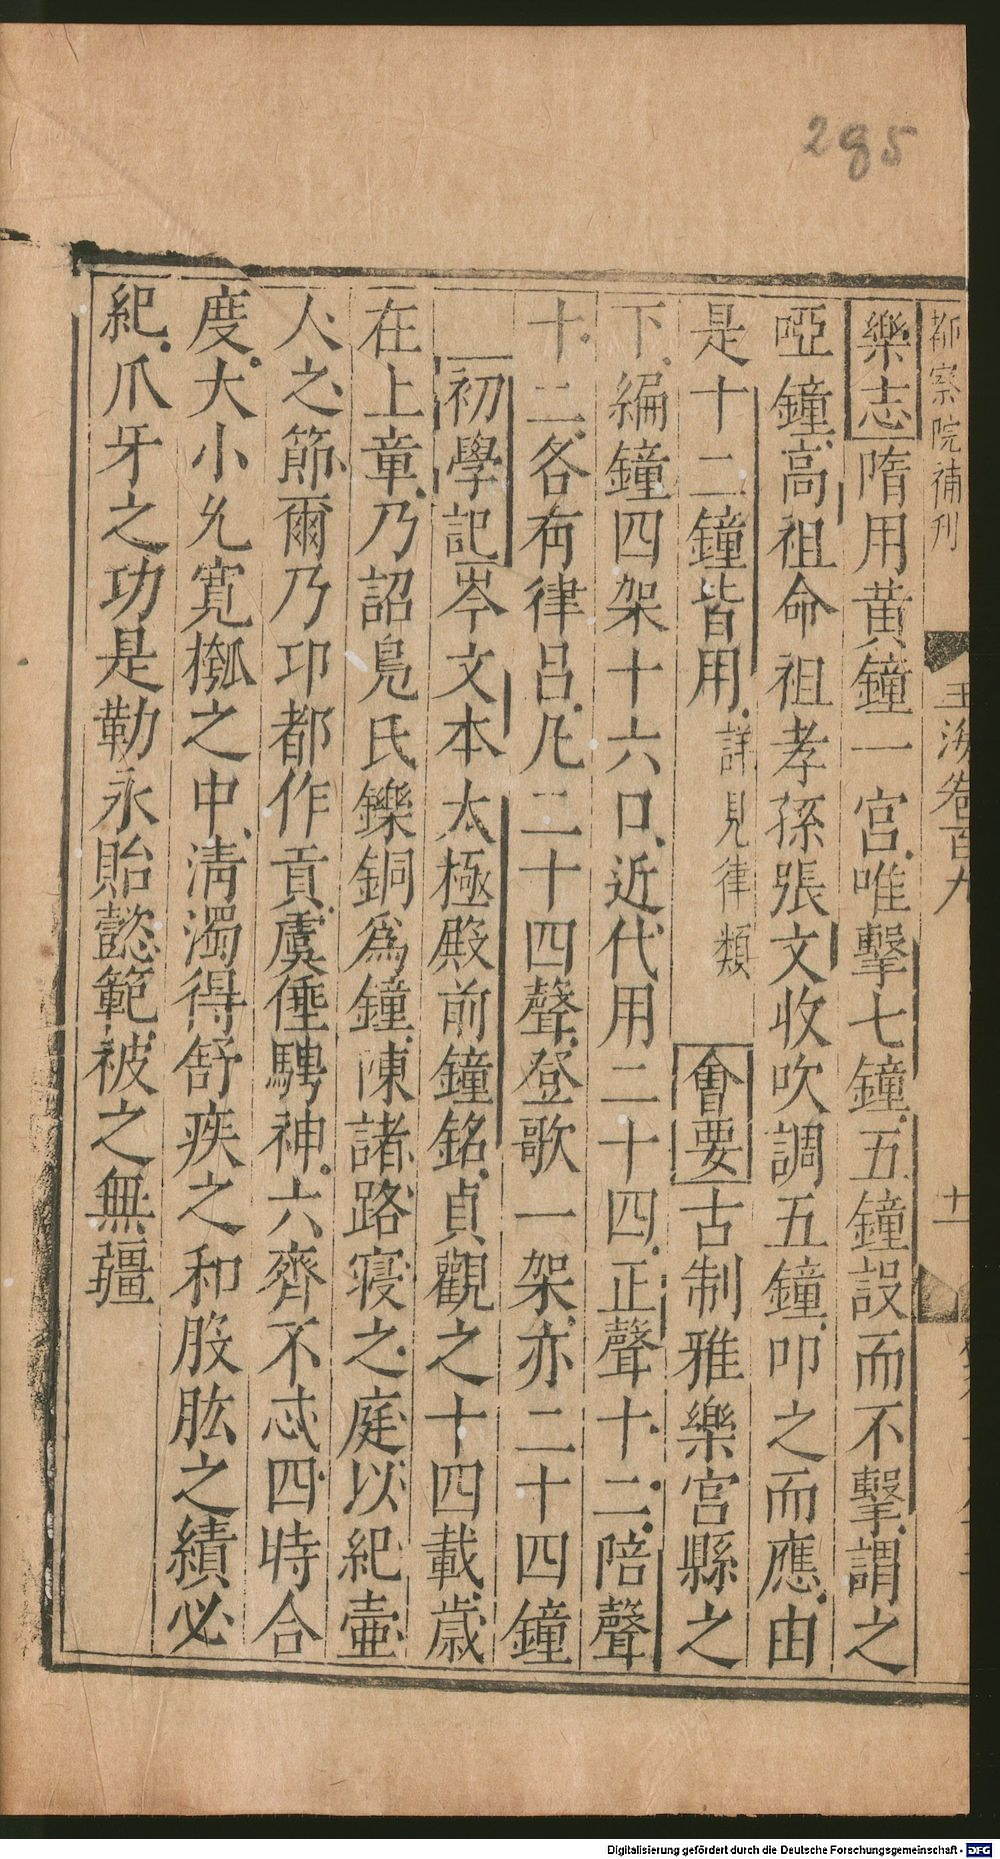 285
都察院補刋
玉海卷百九
十一
樂志隋用黃鐘一宮唯擊七鐘五鐘設而不擊謂之
啞鐘高祖命祖孝孫張文收吹調五鐘叩之而應由
是十二鐘皆用詳見律類 會要古制雅樂宮縣之
下編鐘四架十六口近代用二十四正聲十二陪聲
十二各有律呂凡二十四聲登歌一架亦二十四鐘
初學記岑文本太極殿前鐘銘貞觀之十四載歲
在上章乃詔鳧氏鑠銅爲鐘陳諸路寢之庭以紀壺
人之節爾乃卭都作貢虞倕騁神六齊不忒四時合
度大小允寛槬之中淸濁得舒疾之和股肱之績必
紀爪牙之功是勒永貽懿範被之無疆
Digitalisierung gefördert durch die Deutsche Forschungsgemeinschaft - DFG